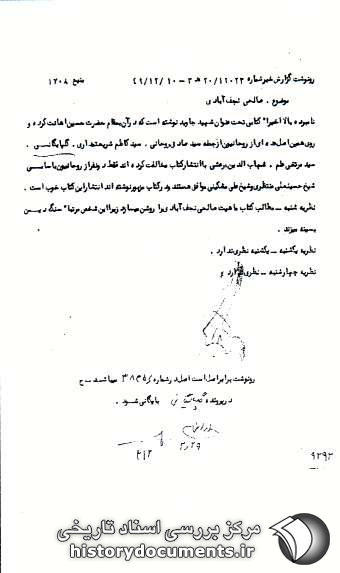 رونوشت گزارش خبر شماره ۲۰/۱۲۰۲۳ ه‍ ۳ - ۱۰/۱۲/۴۹ منبع ۱۲۰۸
موضوع . صالحی نجف آبادی
نامبرده بالا اخیرا" کتابی تحت عنوان شهید جاوید نوشته است که در آن بمقام حضرت حسین اهانت کرده و
روی همین اصل عده ای از روحانیون از جمله سید صادق روحانی . سید کاظم شریعتمداری . گلپایگانی .
سید مرتضی علم . شهاب الدین مرعشی با انتشار کتاب مخالفت کرده اند فقط دو نفر از روحانیون باسامی
شیخ حسینعلی منتظری و شیخ علی مشگینی موافق هستند و در کتاب مزبور نوشته اند انتشار این کتاب خوب است .
نظریه شنبه - مطالب کتاب ماهیت صالحی نجف آبادی را روشن میسازد زیرا این شخص مرتبا" سنگ دین
بسینه میزند .
نظریه یکشنبه - یکشنبه نظری ندارد .
نظریه چهارشنبه - نظری ندارد
رونوشت برابر اصل است اصل در شماره ۳۸۳۵ میباشد - ح
در پرونده گلپایگانی بایگانی شود .
۹۲۹۲
مرکز بررسی اسناد تاریخی
historydocuments.ir